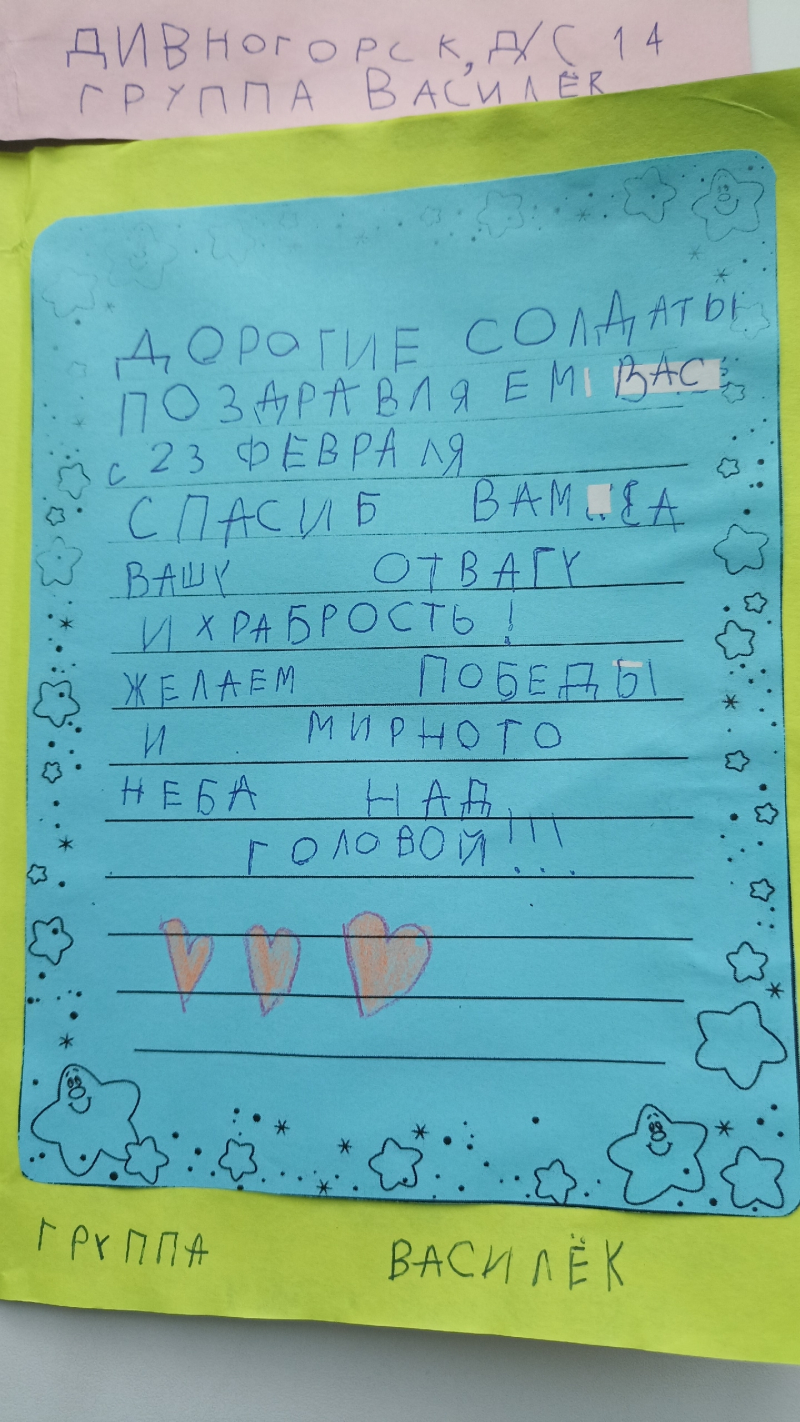 ДИВНОГОРСК, Д/С 14
ГРУППА ВАСИЛЁК
ДОРОГИЕ СОЛДАТЫ
ПОЗДРАВЛЯЕМ ВАС
С 23 ФЕВРАЛЯ
СПАСИБ ВАМ ЕА
ВАШУ ОТВАГУ
И ХРАБРОСТЬ!
ЖЕЛАЕМ ПОБЕДЫ
И МИРНОГО
НЕБА НАД
ГОЛОВОЙ!!!
ГРУППА ВАСИЛЁК